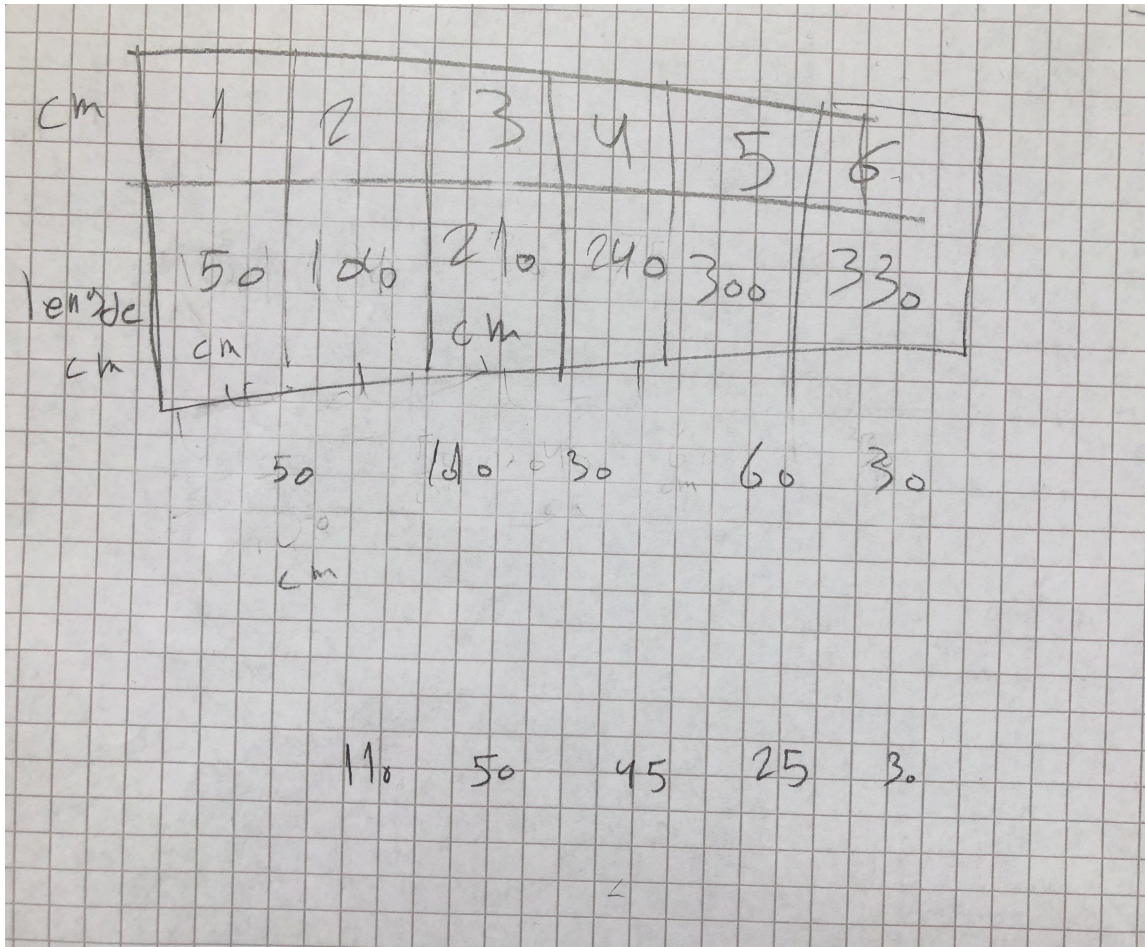 cm 1 2 3 4 5 6
lengde cm 50 cm 100 210 cm 240 300 330
50 110 30 60 30
cm
110 50 45 25 30